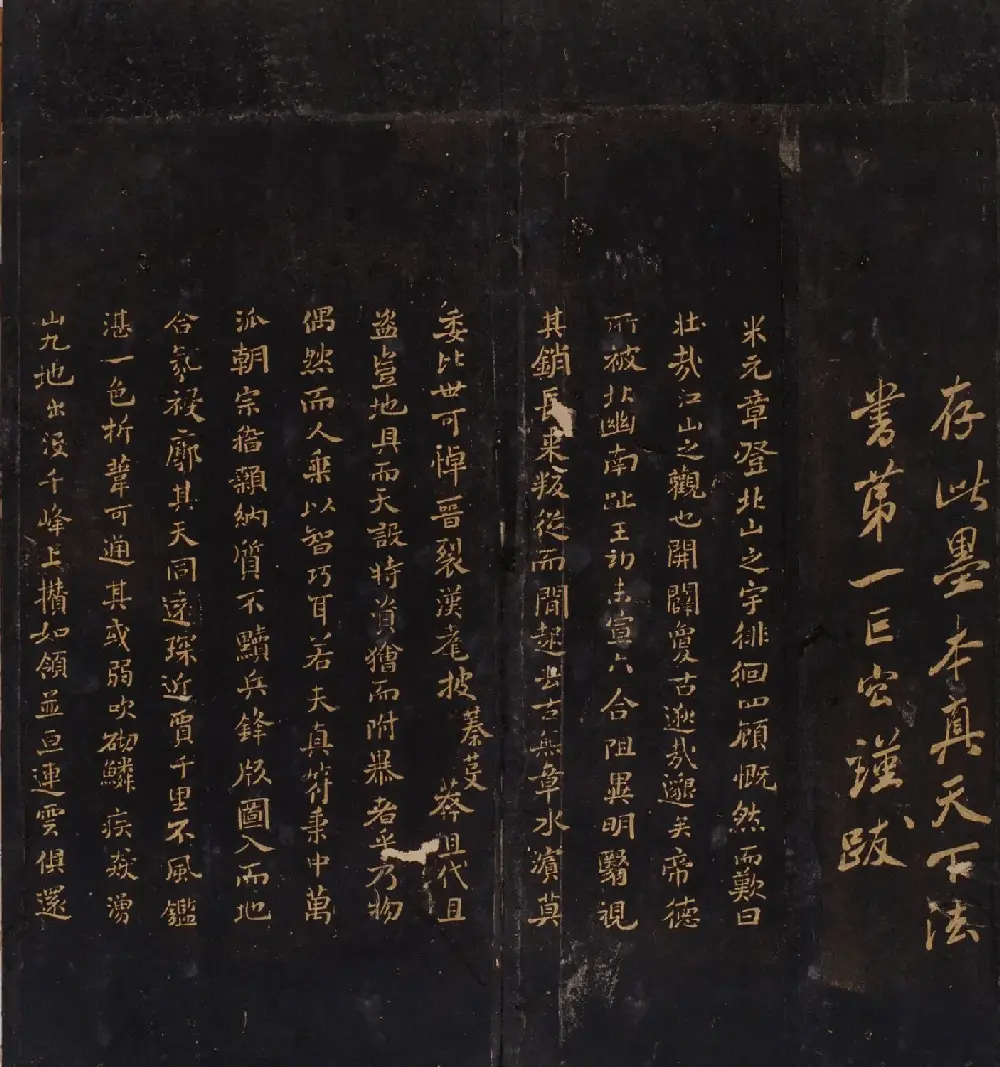 存此墨本真天下法
書第一巳宏謹跋
米元章登北山之宇徘徊四顧慨然而歎曰
壯哉江山之觀也開闢愛古逝哉邈矣帝德
所被北幽南趾王功未宣六合阻異明翳視
其銷長来叛從而閒起去古無章水濱莫
委比世可悼晉裂漢耄披 蓁芟 莽且代且
盗豈地具而天設時資獪而附暴者乎乃物
偶然而人乘以智巧耳若夫真符秉中萬
派朝宗稽顙納質不黷兵鋒版圖入而地
合氛祲廓其天同遠琛近賈千里不風鑑
湛一色折葦可通其或弱吹砌鱗疾猋湧
山九地出没千峰上攢如領並亘連雲俱還